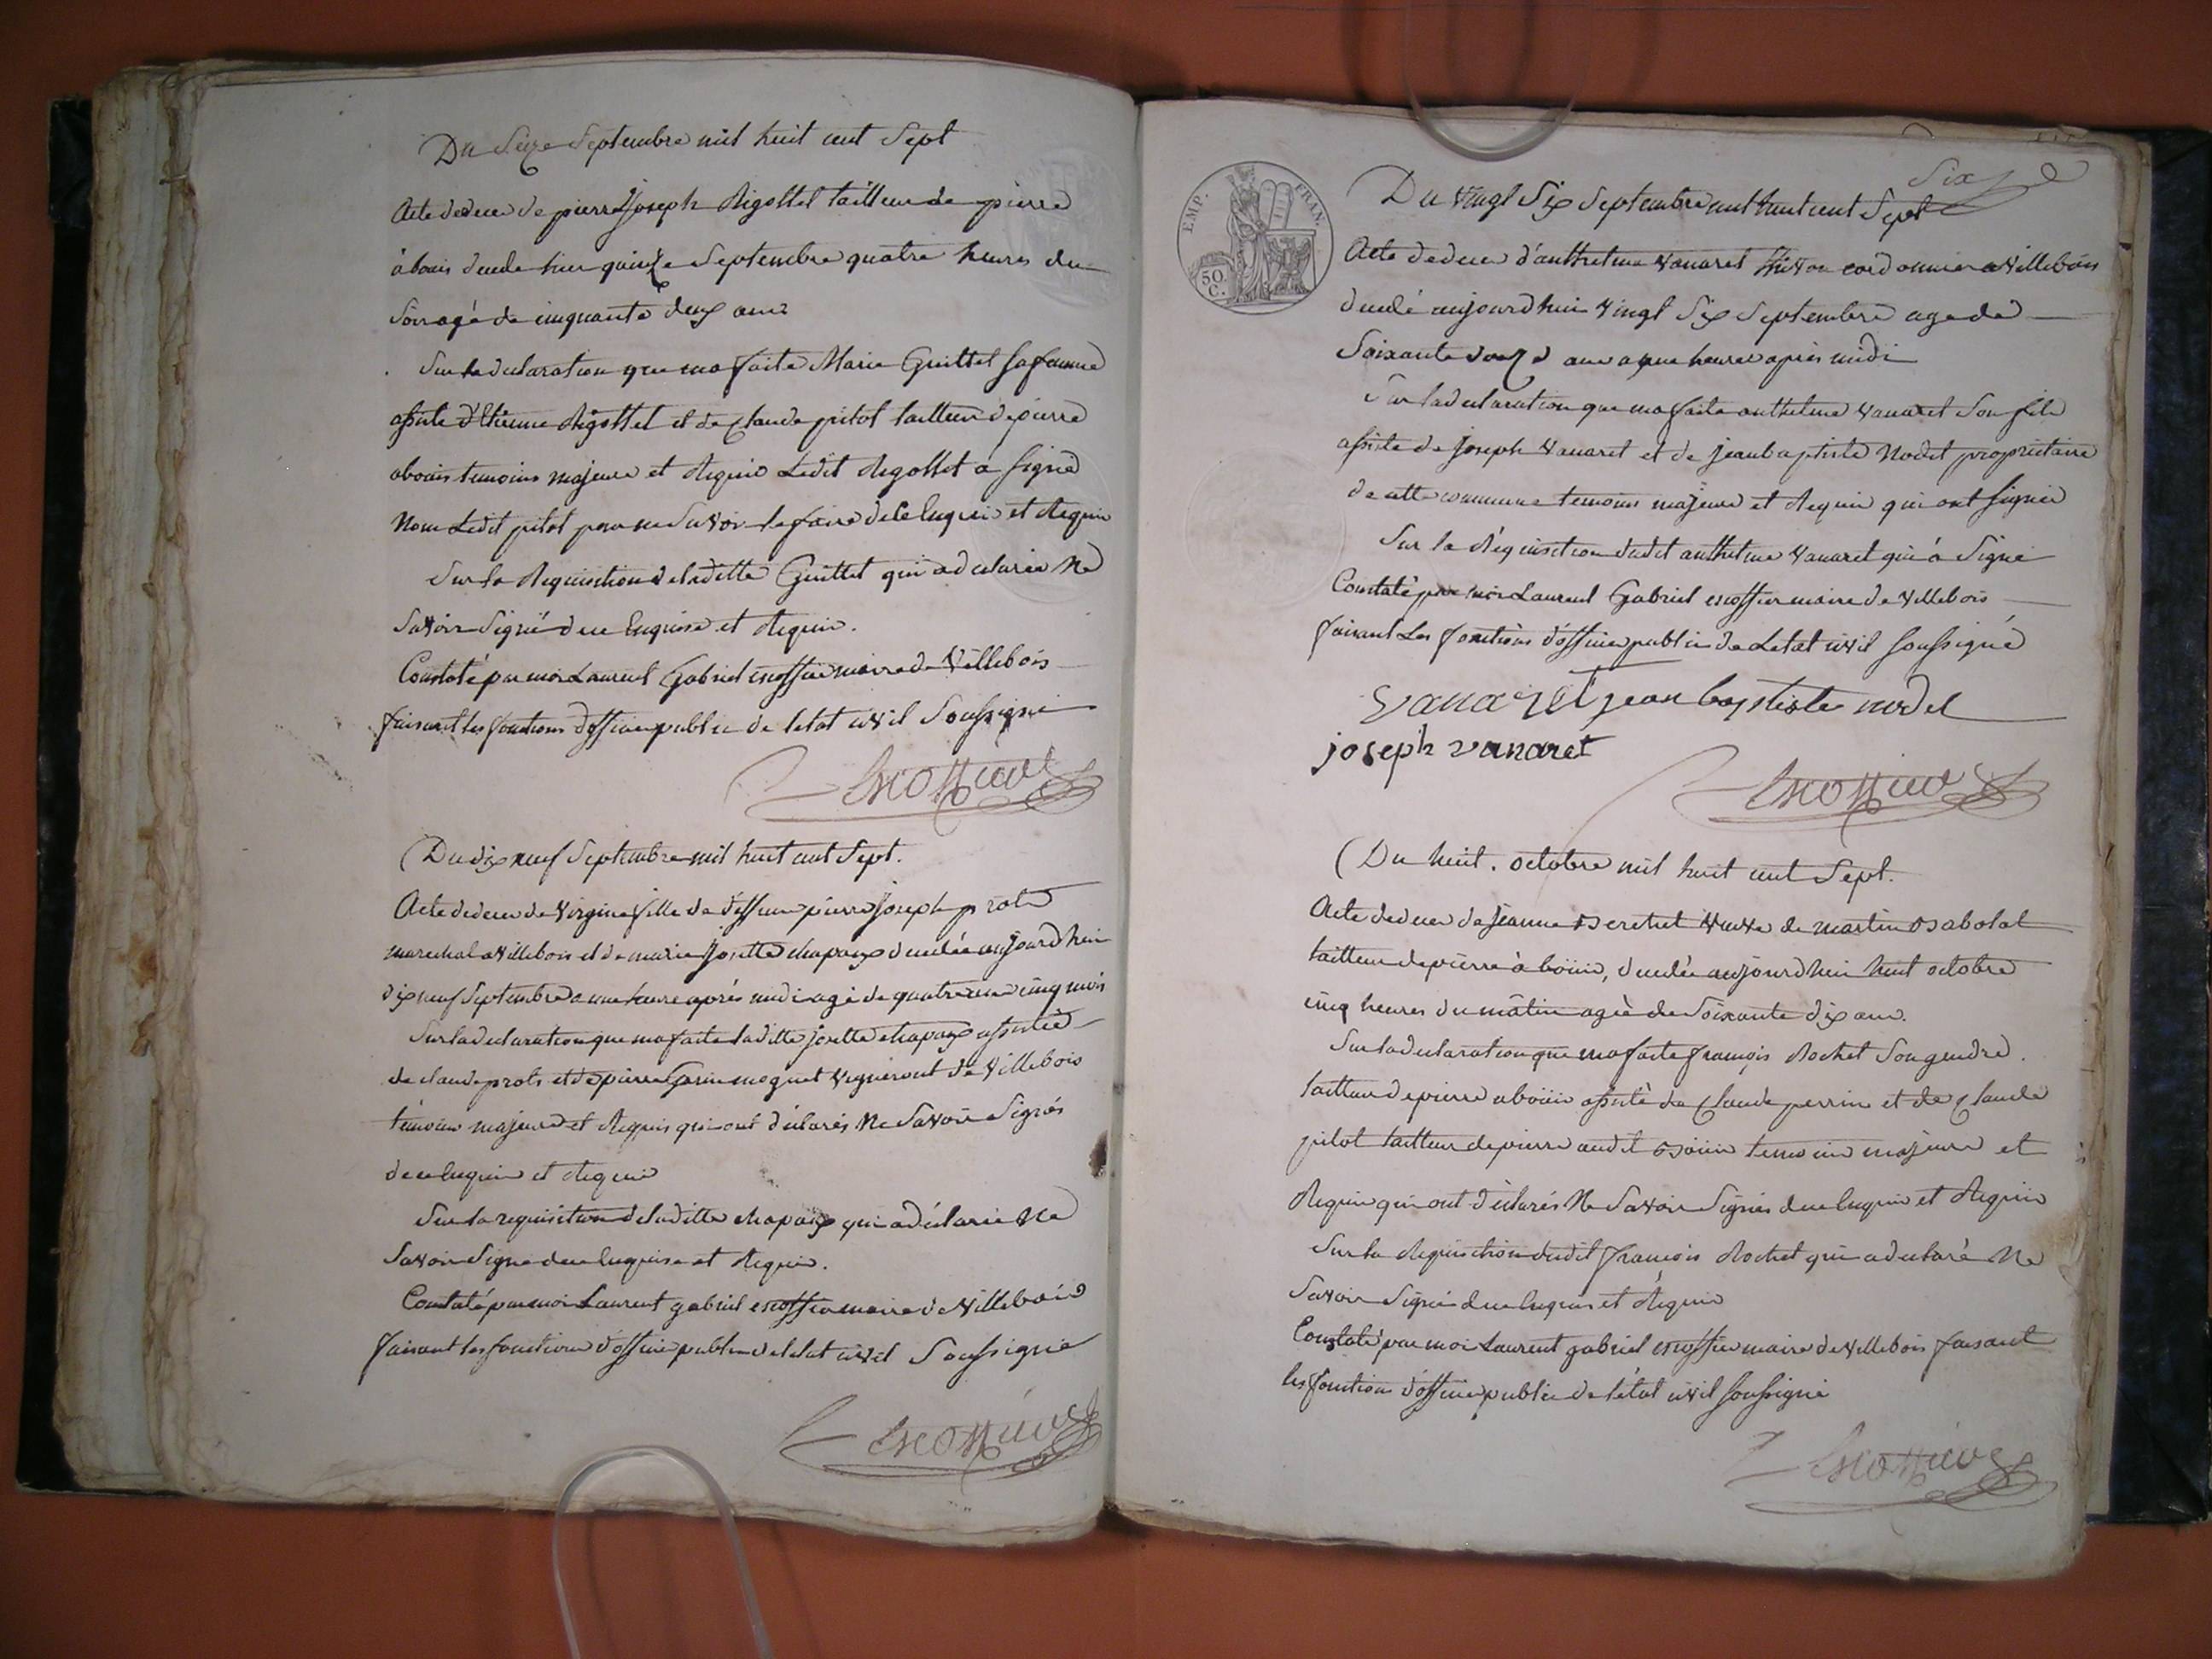 Du Seize Septembre mil huit cent Sept
Acte de deces de pierre Joseph Rigottet tailleur de pierre
à bouis decedé hier quinze Septembre quatre heures du
Soir agé de cinquante deux ans
Sur la declaration que ma faite Marie Guittet Sa femme
assisté d'Etienne Rigottet et de Claude pitot tailleur de pierre
a bouis temoins majeurs et Requis Ledit Rigottet a Signé
Non Ledit pitot pour ne Savoir le faire de ce Enquis et Requis
Sur la Requisition de laditte Guittet qui a declaré Ne
Savoir Signé de ce Enquise et Requise.
Constaté par moi Laurent Gabriel escoffier maire de Villebois
faisant les fonctions d'officier public de letat civil Soussigné
Escoffier
Du dix neuf Septembre mil huit cent Sept.
Acte de deces de Virginie fille de deffunt pierre joseph prots
marechal a Villebois et de marie josette chapaix decedée aujourd'hui
dix neuf Septembre a une heure après midi agé de quatre ans cinq mois
Sur la declaration que ma faite laditte josette chapaix assistée
de claude prots et de pierre moquet Vigneront de Villebois
témoins majeurs et Requis qui ont déclarés Ne Savoir Signés
de ce Enquis et Requis
Sur la requisition de laditte chapaix qui a déclarée Ne
Savoir Signé de ce Enquise et Requise.
Constaté par moi Laurent gabriel escoffier maire de Villebois
faisant les fonctions d'officier public de letat civil Soussigné
Escoffier
Six
EMP. FRAN.
50 C.
Du Vingt Six Septembre mil huit cent Sept
Acte de deces d'anthelme Vanaret cordonnier a Villebois
decedé aujourd'hui Vingt Six Septembre age de
Soixante douze ans a une heure après midi
Sur la declaration que ma faite anthelme Vanaret Son fils
assisté de Joseph Vanaret et de jean baptiste Nodet proprietaire
de cette commune temoins majeurs et Requis qui ont Signés
Sur la Réquisition dudit anthelme Vanaret qui à Signé
Constaté par moi Laurent Gabriel escoffier maire de Villebois
faisant Les fonctions d'officier public de Letat civil Soussigné
Vanaret jean baptiste nodet
joseph vanaret
Escoffier
Du huit. octobre mil huit cent Sept.
Acte de deces de jeanne Berchet Veuve de martin Babolat
tailleur de pierre à bouis, decedée aujourd'hui huit octobre
cinq heures du matin agée de Soixante dix ans.
Sur la declaration que ma faite françois Rochet Son gendre.
tailleur de pierre a bouis assisté de Claude perrin et de Claude
pitot tailleur de pierre audit Bouis temoins majeurs et
Requis qui ont déclarés Ne Savoir Signés de ce Enquis et Requis
Sur la Requisition dudit françois Rochet qui a declaré Ne
Savoir Signé de ce Enquis et Requis
Constaté par moi Laurent gabriel escoffier maire de Villebois faisant
les fonctions d'officier public de l'état civil Soussigné
Escoffier